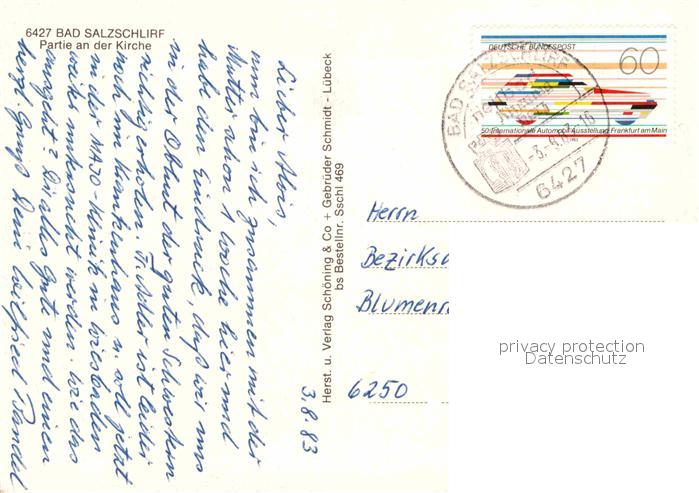 6427 BAD SALZSCHLIRF
Partie an der Kirche
Lieber Alois,
nun bin ich zusammen mit der
Mutter schon 1 Woche hier und
habe den Eindruck, daß wir uns
in der Obhut der guten Schwestern
richtig erholen. Fr. Adler ist leider
noch im Krankenhaus u. soll jetzt
in der HAJO-Klinik in Wiesbaden
weiter behandelt werden. Wie das
ausgeht? Dir alles Gute und einen
herzl. Gruß Dein Wilfried
3.8.83
Herst. u. Verlag Schöning & Co + Gebrüder Schmidt - Lübeck
bs Bestellnr. Sschl 469
DEUTSCHE BUNDESPOST
60
50. Internationale Automobil-Ausstellung Frankfurt am Main
BAD SALZSCHLIRF
6427
Herrn
Blumen
6250
privacy protection
Datenschutz